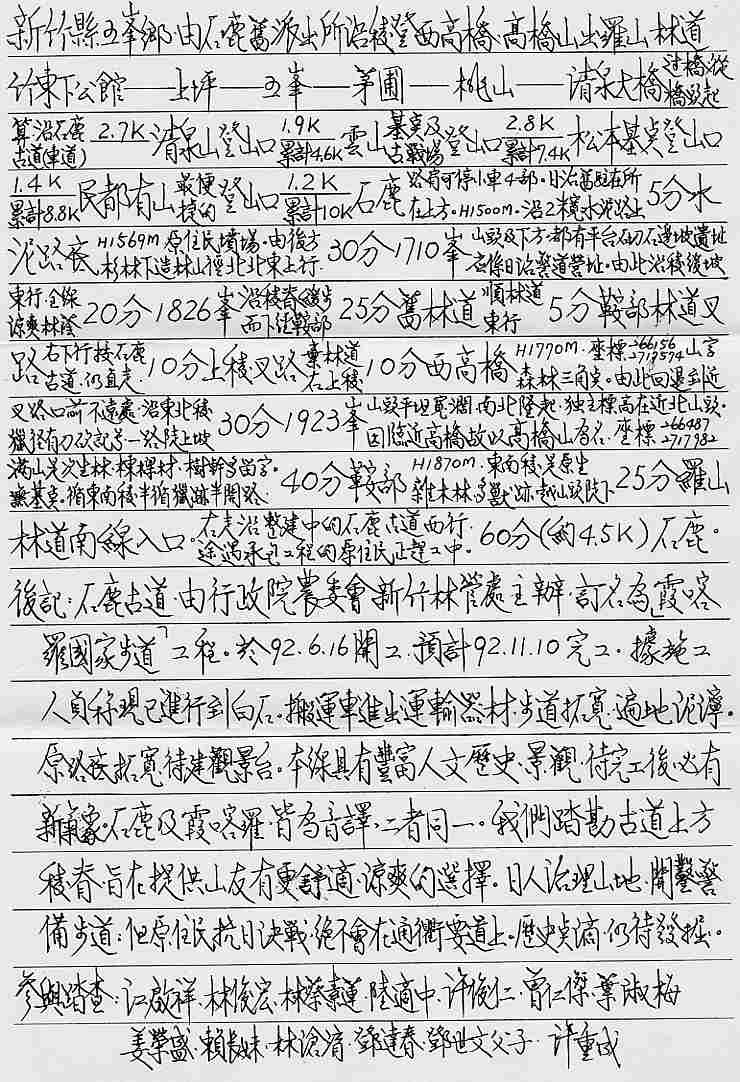 新竹縣五峯鄉·由石鹿舊派出所沿稜登西高橋·高橋山出羅山林道
竹東下公館——上坪——五峯——茅圃——桃山——清泉大橋 過橋後從橋頭起
算沿石鹿古道(車道) 2.7K 清泉山登山口 1.9K 累計4.6K 雲山基点及古戰場登山口 2.8K 累計7.4K 松本基点登山口
1.4K 累計8.8K 民都有山 最便捷的 登山口 1.2K 累計10K 石鹿 路肩可停小車4部。日治舊駐在所在上方。H1500m。沿2橫水泥路上 5分水
泥路底 H1569M 原住民墳場·由後方杉林下造林山徑北北東上行 30分1710峯 山頭及下方·都有平台石砌石邊坡遺址 應係日治警道營址。由此沿稜後坡
東行·全線涼爽林蔭 20分1826峯 沿稜脊緩步而下往鞍部 25分舊林道 順林道東行 5分鞍部林道叉
路 右下行接石鹿古道·仍直走 10分上稜叉路 棄林道右上稜 10分西高橋 H1770M·座標266156 2717594 山字森林三角点。由此回退到近
叉路口前不遠處·沿東北稜獵徑有刀砍記号一路陡上坡 30分1923峯 山頭平坦寬濶·南北隆起·独立標高在近北山頭·因臨近高橋故以高橋山為名·座標266487 2717982
滿山是次生林·棟樑材·樹幹多留字·無基点。循東南稜半循獵跡半開路 40分鞍部 H1870M·東南稜是原生雜木林·多獸跡·越山頭陡下 25分羅山
林道南線入口。右走沿整建中的石鹿古道西行·途遇承包工程的原住民正趕工中。60分(約4.5K)石鹿。
後記:石鹿古道·由行政院農委會新竹林管處主辦·訂名為「霞喀
羅國家步道」工程。於92.6.16開工·預計92.11.10完工。據施工
人員稱現已進行到白石。搬運車進出運輸器材·步道拓寬·遍地泥濘。
原路底拓寬·待建觀景台。本線具有豐富人文歷史·景觀·待完工後必有
新氣象。石鹿及霞喀羅·皆為音譯·二者同一。我們踏勘古道上方
稜脊旨在提供山友有更舒適·涼爽的選擇。日人治理山地·開鑿警
備步道:但原住民抗日決戰·絕不會在通衢要道上。歷史真滴·仍待發掘。
參與踏查:江啟祥·林俊宏·林蔡素蓮·陸適中·許俊仁·曾仁傑·葉淑梅
姜榮盛·賴長妹·林滄淯·鄧連春·鄧世文父子·許重成